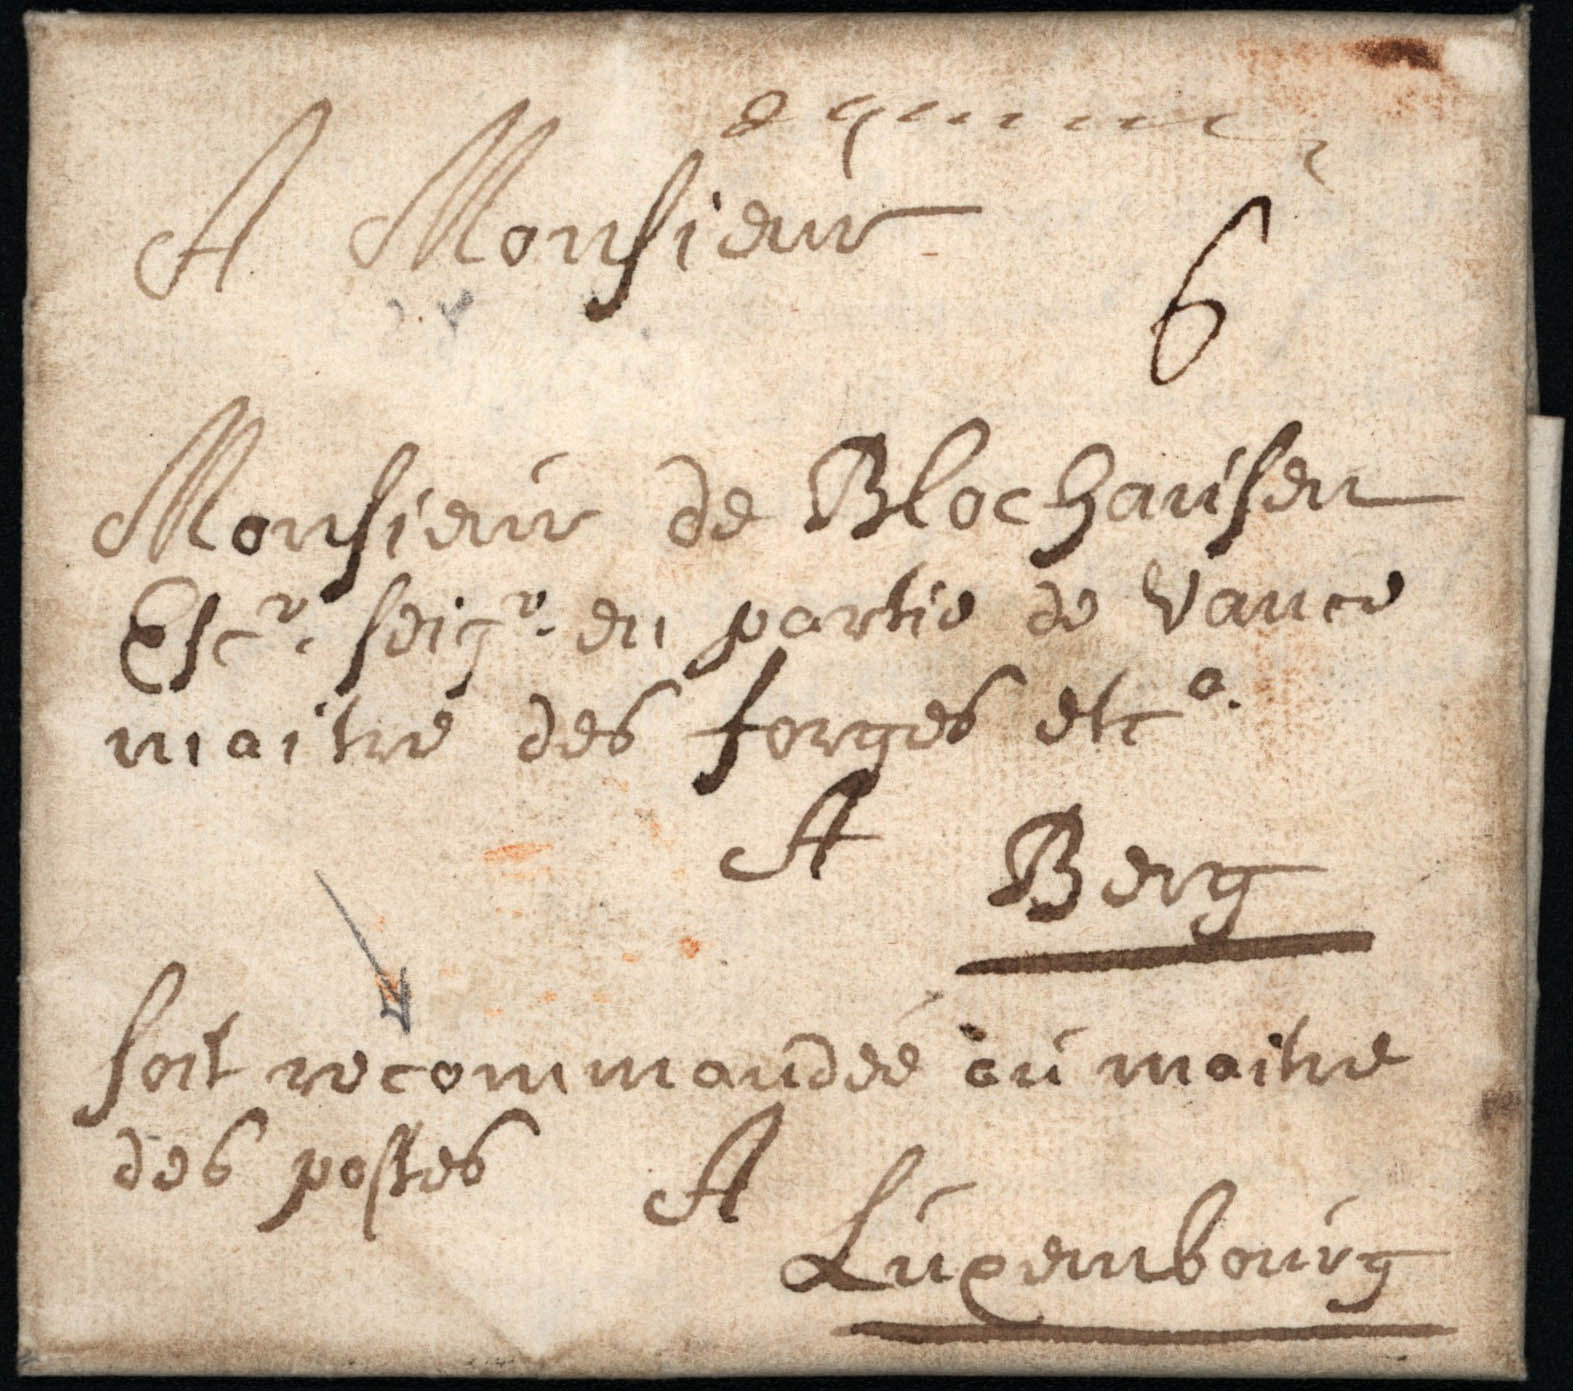 A Monsieur
6
Monsieur de Blochausen
Escr. seigr. en partie de Vance
maitre des forges etca.
A Berg
soit recommandée au maitre
des postes A
Luxembourg